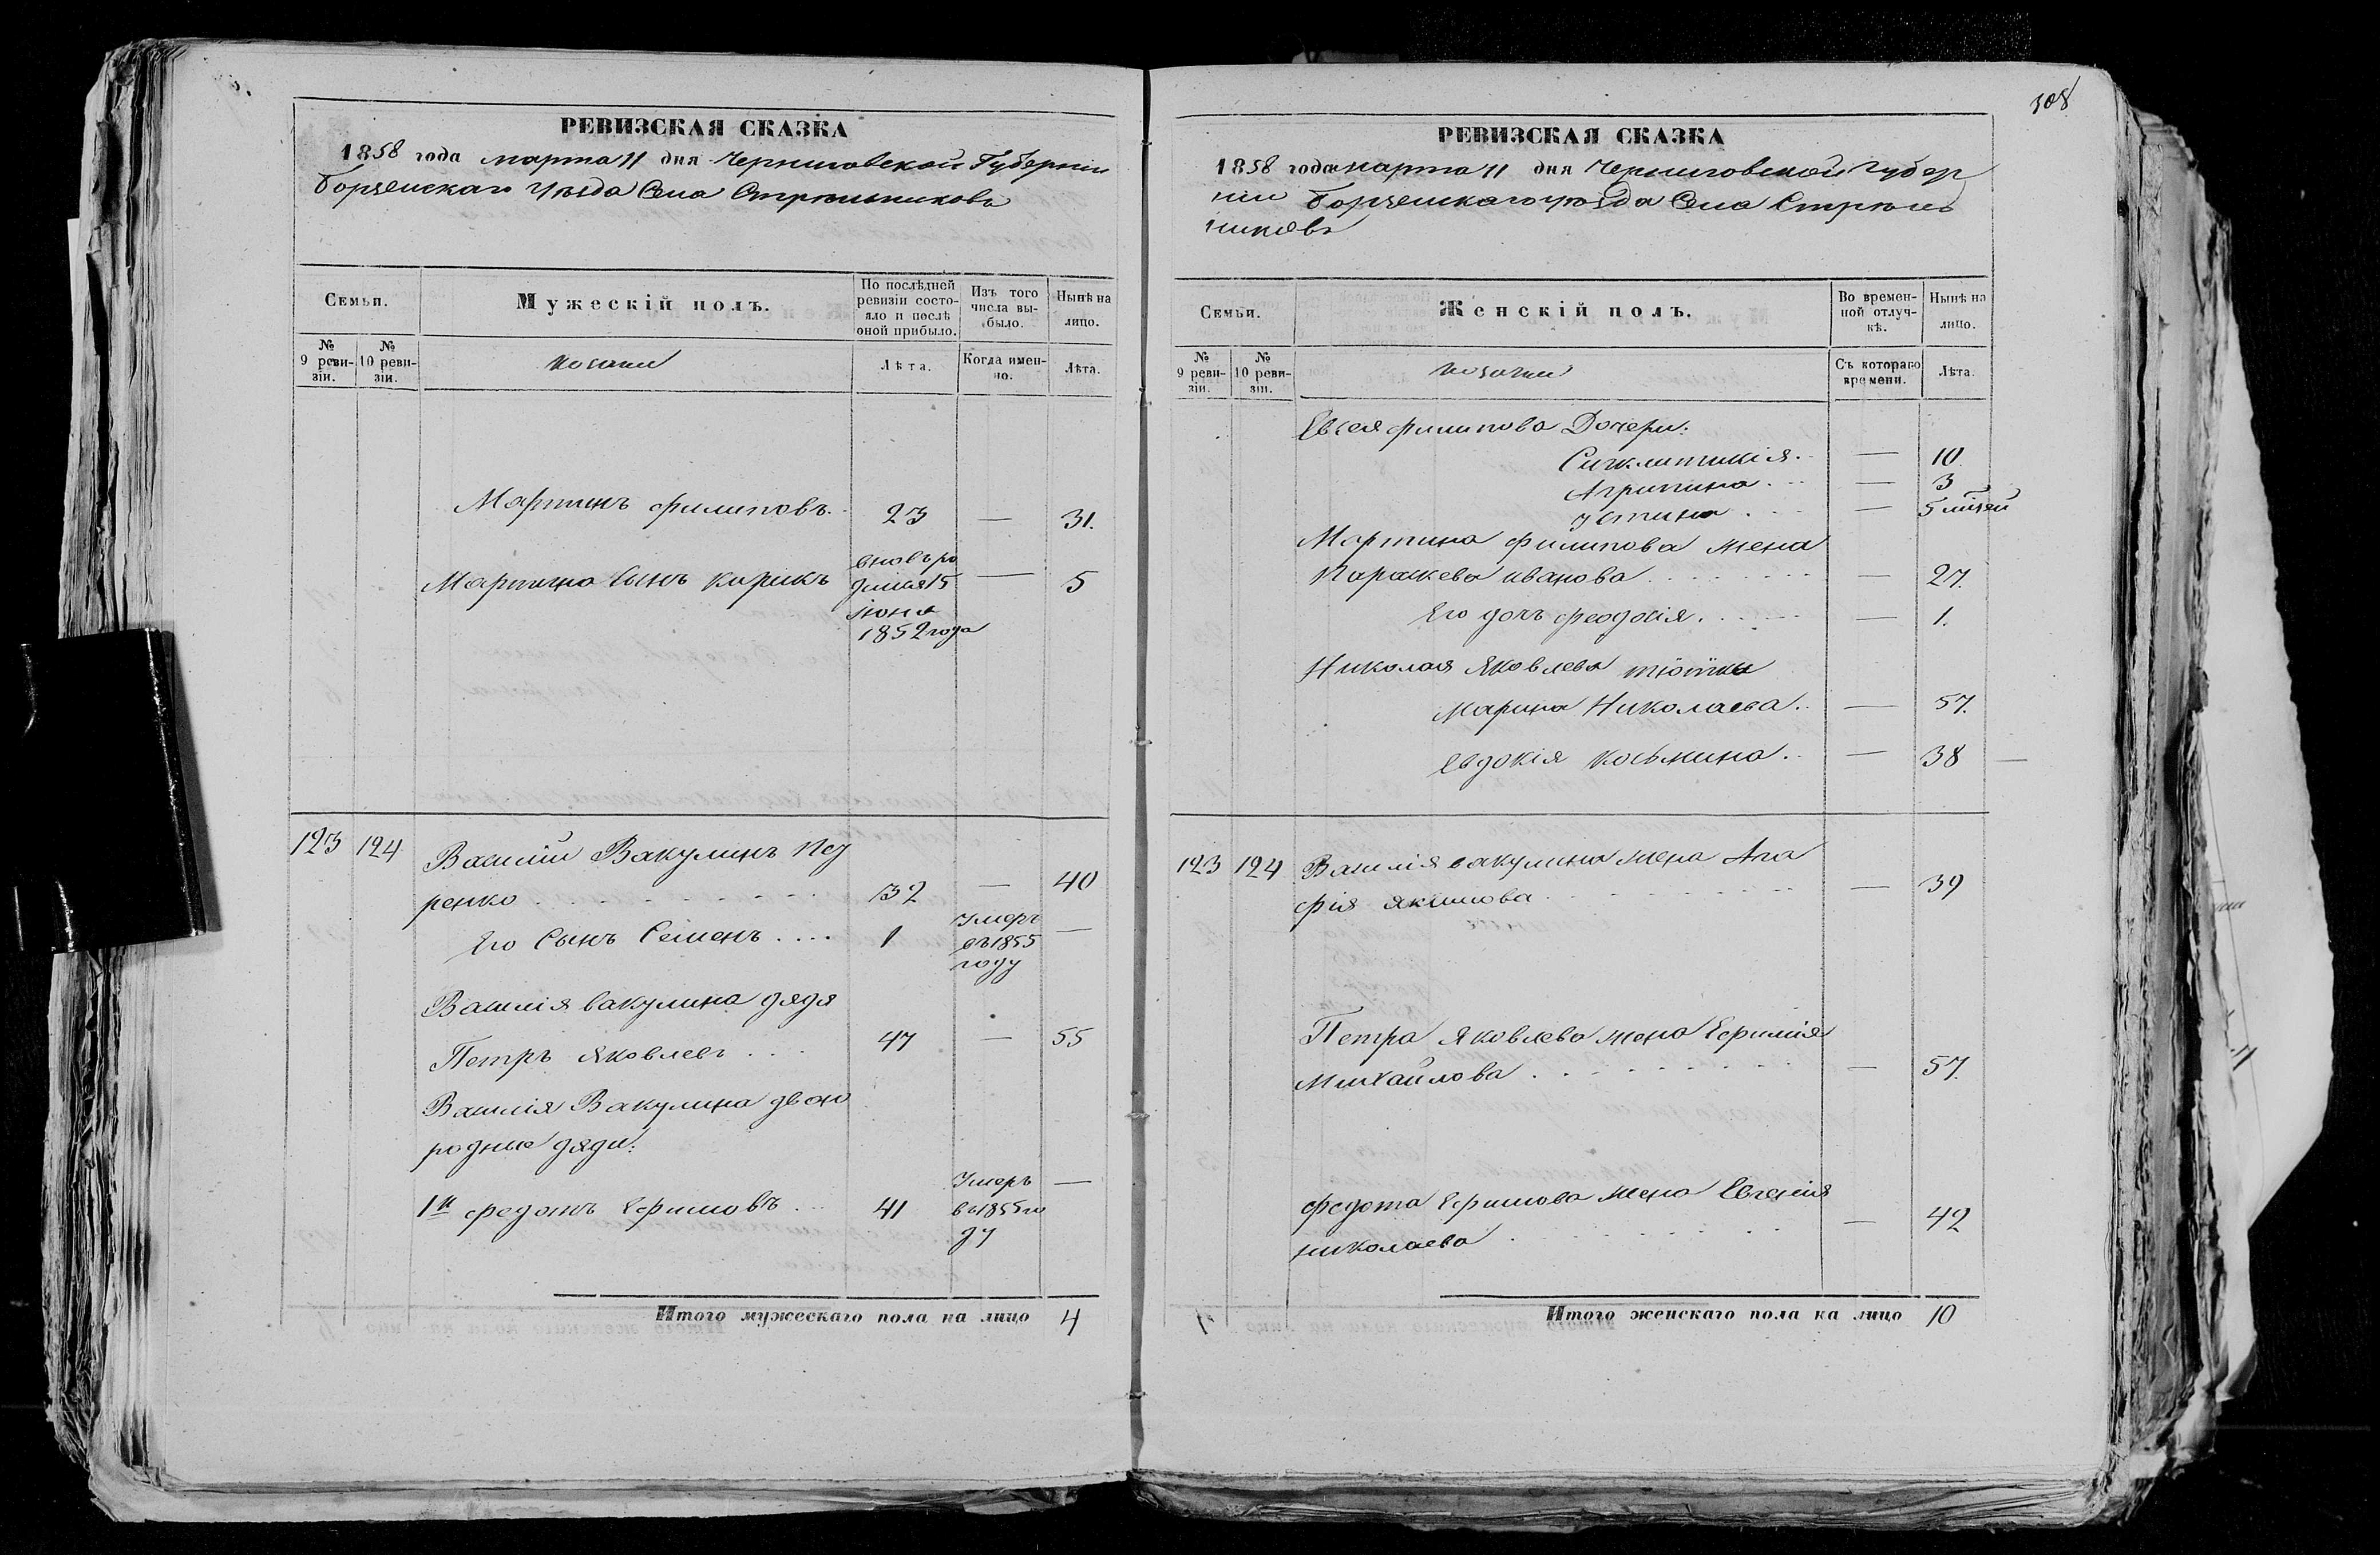 РЕВИЗСКАЯ СКАЗКА
1858 года марта 11 дня Черниговской Губернии
Борзенскаго Уезда Села Стрельниковъ
Семьи.
Мужескій полъ.
По послѣдней ревизіи состояло и послѣ оной прибыло.
Изъ того числа выбыло.
Нынѣ на лицо.
№ 9 ревизіи.
№ 10 ревизіи.
козаки
Лѣта.
Когда именно.
Лѣта.
Мартинъ филиповъ. 23 — 31.
вновь ро
Мартина Сынъ Кирикъ дился 15 — 5
Іюня
1852 года
123 124 Василій Вакулинъ
ренко 32 — 40
Его Сынъ Семенъ 1 Умеръ —
въ 1855
году
Василія Вакулина дядя
Петръ Яковлевъ 47 — 55
Василія Вакулина двою
родные дяди:
1й федотъ Ефимовъ 41 Умеръ —
въ 1855 го
ду
Итого мужескаго пола на лицо 4
308
РЕВИЗСКАЯ СКАЗКА
1858 года марта 11 дня Черниговской Губер
нии Борзенскаго уезда Села Стрель
никовъ
Семьи.
Женскій полъ.
Во временной отлучкѣ.
Нынѣ на лицо.
№ 9 ревизіи.
№ 10 ревизіи.
козачки
Съ котораго времени.
Лѣта.
Евсея филипова Дочери:
Сигклитикія. — 10.
Агрипина — 3
Устина — 5
Мартина филипова жена
Параскева иванова — 27.
Его дочь феодосія. — 1.
Николая Яковлева тіотки
Марина Николаева — 57.
Евдокія Косьмина — 38
123 124 Василія вакулина жена Ага
фія якимова — 39
Петра Яковлева жена Ефимія
Михайлова — 57.
федота Ефимова жена Евгенія
николаева — 42
Итого женскаго пола на лицо 10